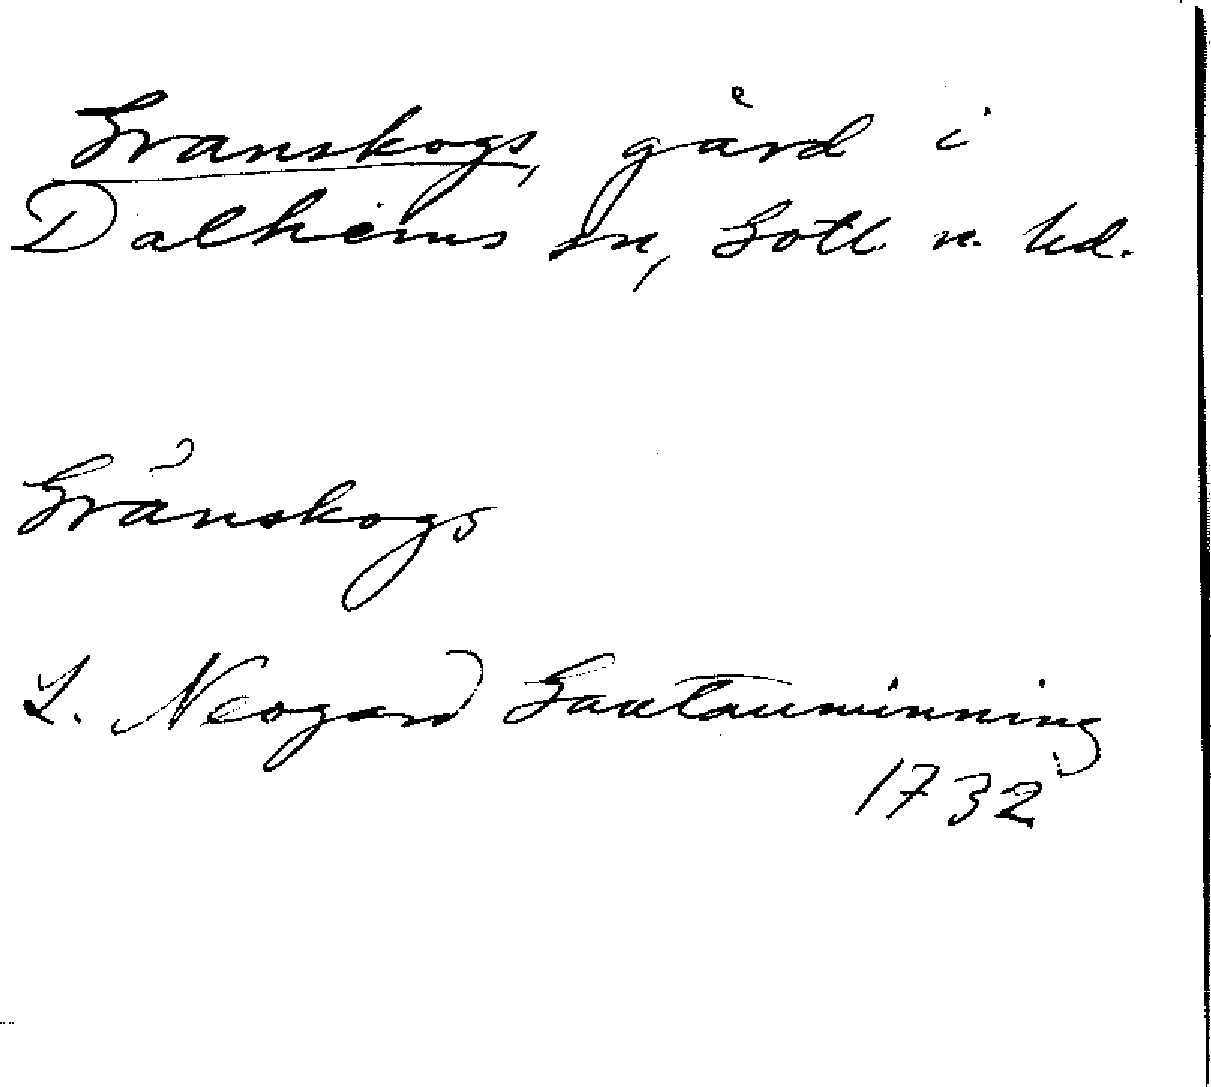 Granskogs, gård i
Dalhems sn, Gotl n. hd.
Gränskogs
L. Neogard Gautauminning
1732